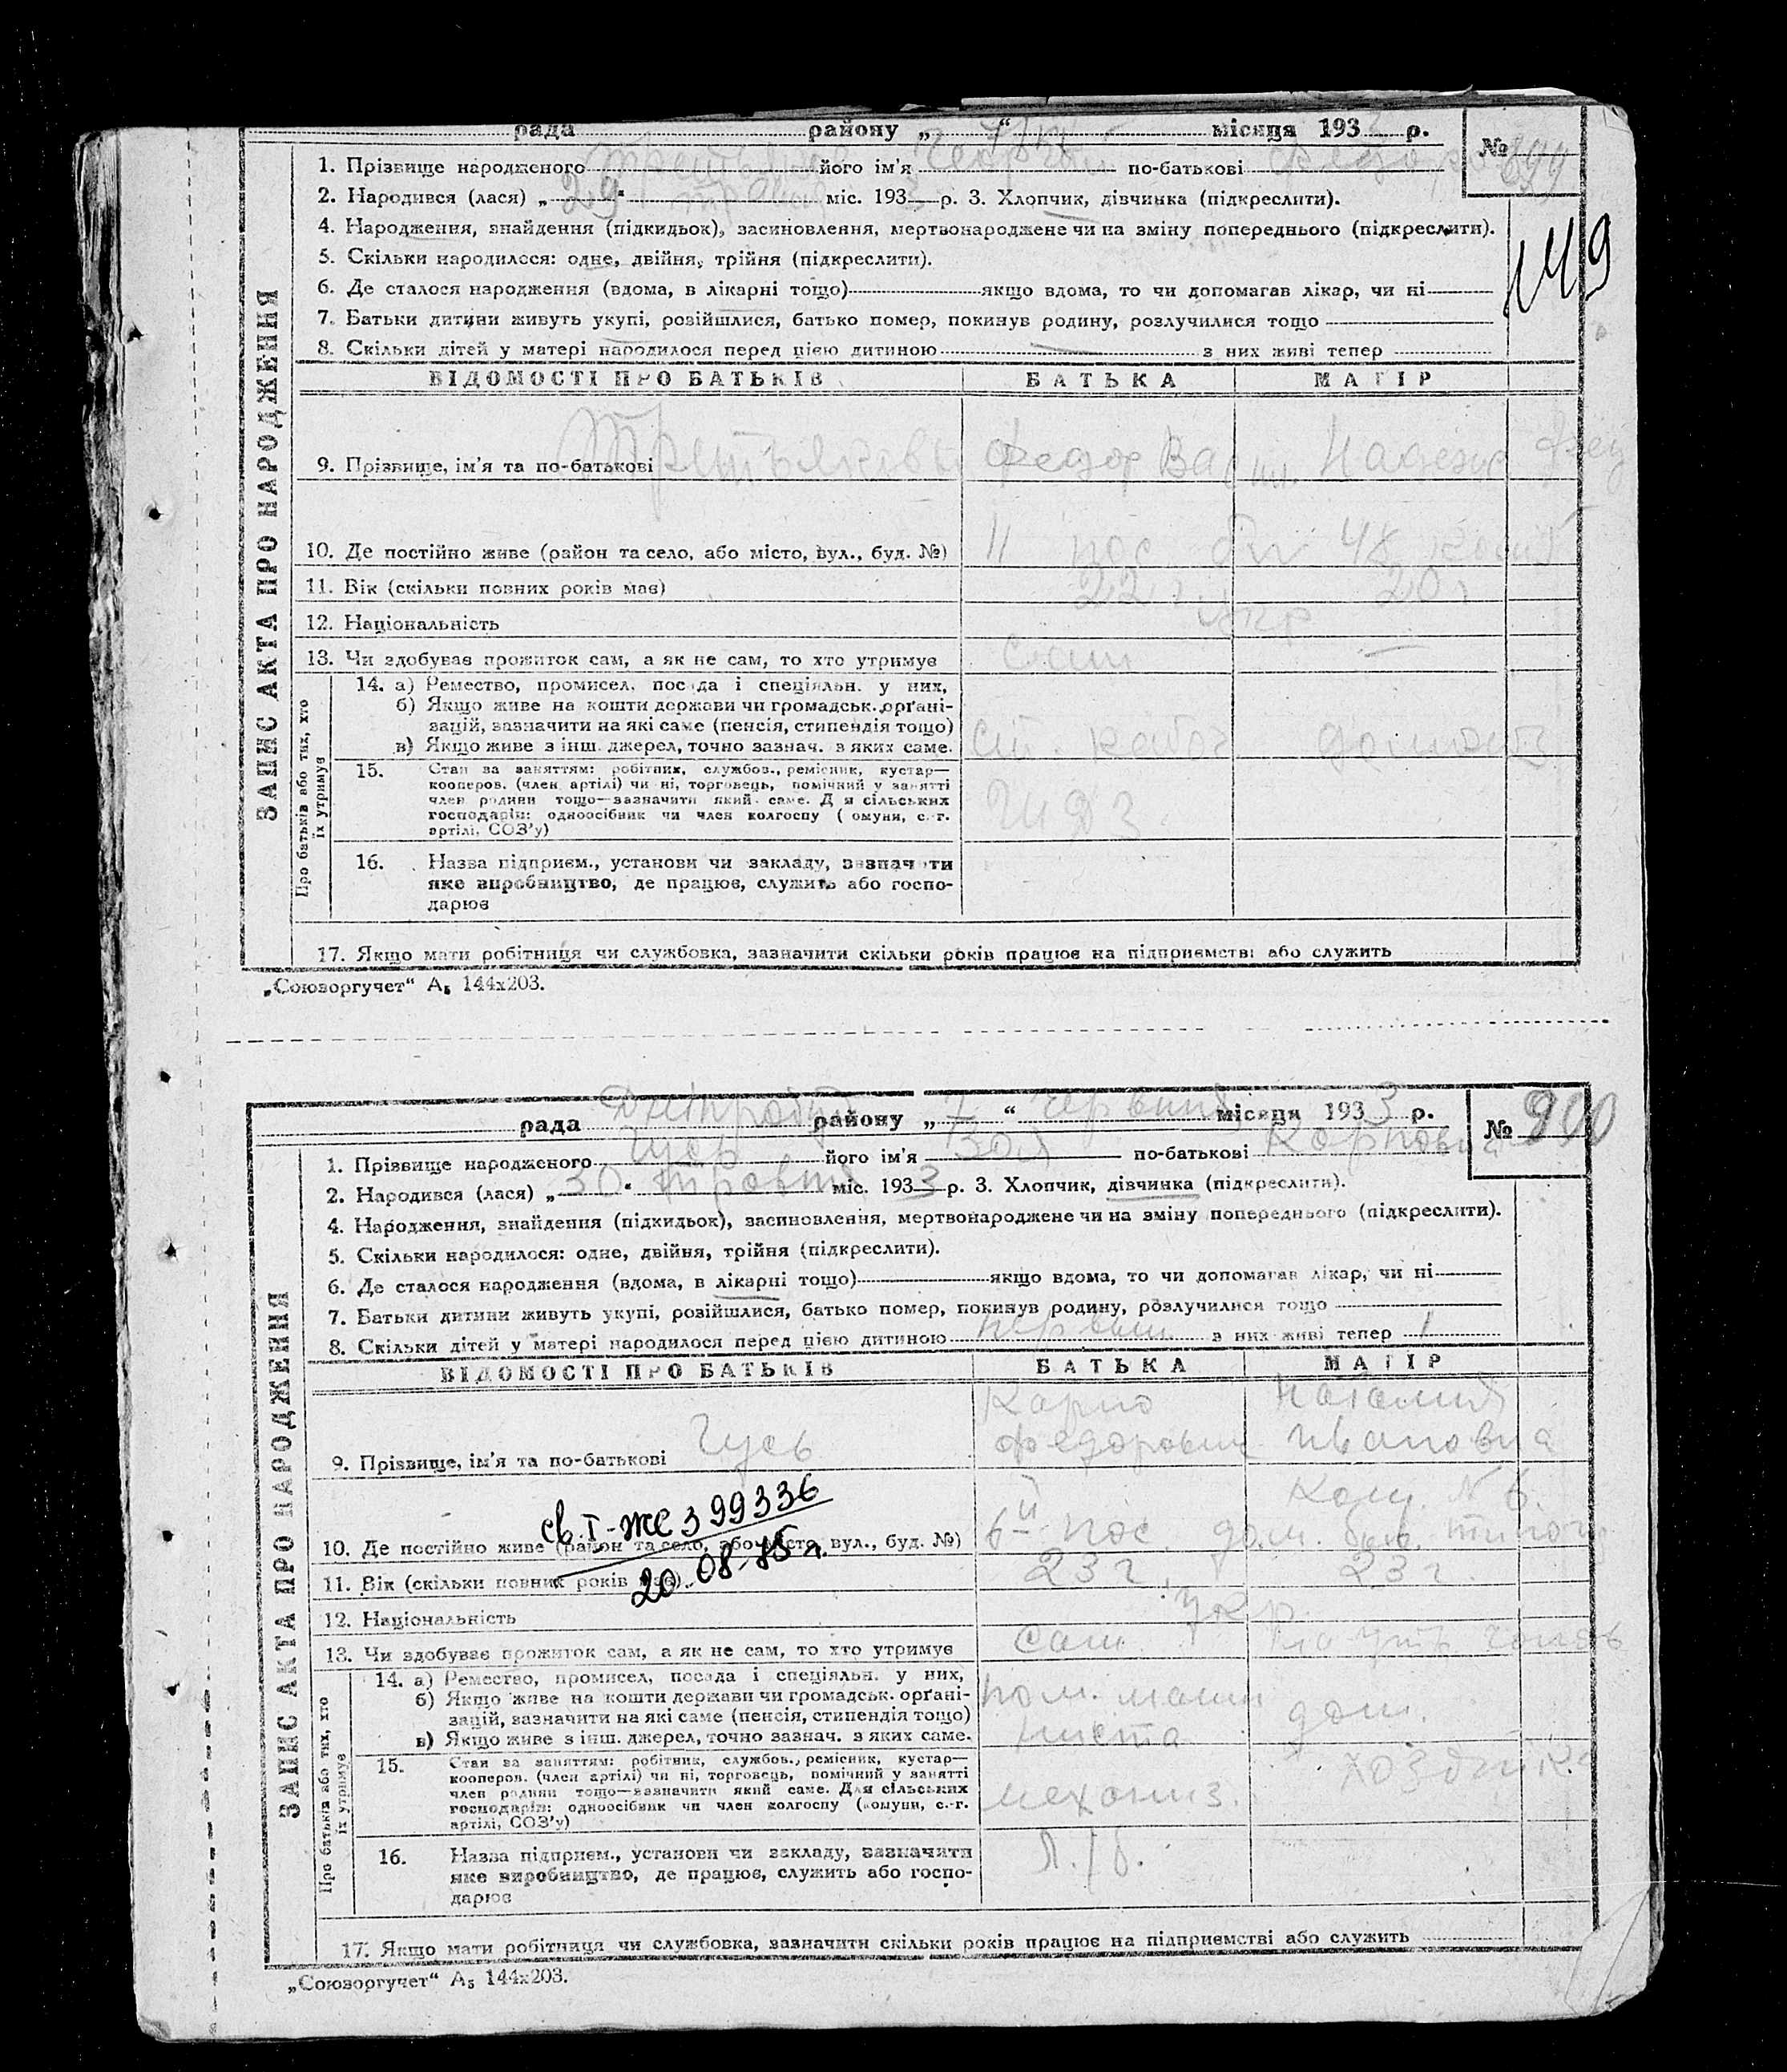 рада району „ “ місяця 193 р.
№ 899
1. Прізвище народженого його ім'я по-батькові
2. Народився (лася) „29“ травня міс. 193 р. 3. Хлопчик, дівчинка (підкреслити).
4. Народження, знайдення (підкидьок), засиновлення, мертвонароджене чи на зміну попереднього (підкреслити).
149
5. Скільки народилося: одне, двійня, трійня (підкреслити).
6. Де сталося народження (вдома, в лікарні тощо) якщо вдома, то чи допомагав лікар, чи ні
7. Батьки дитини живуть укупі, розійшлися, батько помер, покинув родину, розлучилися тощо
8. Скільки дітей у матері народилося перед цією дитиною — з них живі тепер
ЗАПИС АКТА ПРО НАРОДЖЕННЯ
ВІДОМОСТІ ПРО БАТЬКІВ БАТЬКА МАТІР
9. Прізвище, ім'я та по-батькові Третьякови Федор Васил. Надежда
10. Де постійно живе (район та село, або місто, вул., буд. №) 11 пос.
11. Вік (скільки повних років має) 22 г. 20 г.
12. Національність укр
13. Чи здобуває прожиток сам, а як не сам, то хто утримує сам —
Про батьків або тих, хто їх утримує
14. а) Ремество, промисел, посада і спеціяльн. у них,
б) Якщо живе на кошти держави чи громадськ. орґані-
зацій, зазначити на які саме (пенсія, стипендія тощо)
в) Якщо живе з інш. джерел, точно зазнач. з яких саме.
15. Стан за заняттям: робітник, службов., ремісник, кустар—
кооперов. (член артілі) чи ні, торговець, помічний у занятті
член родини тощо—зазначити який саме. Для сільських
господарів: одноосібник чи член колгоспу (комуни, с.-г.
артілі, СОЗ'у)
16. Назва підприєм., установи чи закладу, зазначити
яке виробництво, де працює, служить або госпо-
дарює
17. Якщо мати робітниця чи службовка, зазначити скільки років працює на підприємстві або служить
„Союзоргучет“ А₅ 144х203.
рада Дніпробуд району „7“ червня місяця 1933 р.
№ 900
1. Прізвище народженого Гусь його ім'я Зоя по-батькові Карповна
2. Народився (лася) „30“ травня міс. 1933 р. 3. Хлопчик, дівчинка (підкреслити).
4. Народження, знайдення (підкидьок), засиновлення, мертвонароджене чи на зміну попереднього (підкреслити).
5. Скільки народилося: одне, двійня, трійня (підкреслити).
6. Де сталося народження (вдома, в лікарні тощо) якщо вдома, то чи допомагав лікар, чи ні
7. Батьки дитини живуть укупі, розійшлися, батько помер, покинув родину, розлучилися тощо
8. Скільки дітей у матері народилося перед цією дитиною з них живі тепер 1
ЗАПИС АКТА ПРО НАРОДЖЕННЯ
ВІДОМОСТІ ПРО БАТЬКІВ БАТЬКА МАТІР
9. Прізвище, ім'я та по-батькові Гусь Карпо Федорович Наталия Ивановна
св. І-ЖС 399336
20 08-75 г.
10. Де постійно живе (район та село, або місто, вул., буд. №) 6й пос. дом. быв. типогр. ком № 6.
11. Вік (скільки повних років має) 23 г. 23 г.
12. Національність укр.
13. Чи здобуває прожиток сам, а як не сам, то хто утримує сам на утр.
Про батьків або тих, хто їх утримує
14. а) Ремество, промисел, посада і спеціяльн. у них,
б) Якщо живе на кошти держави чи громадськ. орґані-
зацій, зазначити на які саме (пенсія, стипендія тощо)
в) Якщо живе з інш. джерел, точно зазнач. з яких саме.
пом. маши
ниста
дом.
15. Стан за заняттям: робітник, службов., ремісник, кустар—
кооперов. (член артілі) чи ні, торговець, помічний у занятті
член родини тощо—зазначити який саме. Для сільських
господарів: одноосібник чи член колгоспу (комуни, с.-г.
артілі, СОЗ'у)
механиз.
16. Назва підприєм., установи чи закладу, зазначити
яке виробництво, де працює, служить або госпо-
дарює
17. Якщо мати робітниця чи службовка, зазначити скільки років працює на підприємстві або служить
„Союзоргучет“ А₅ 144х203.